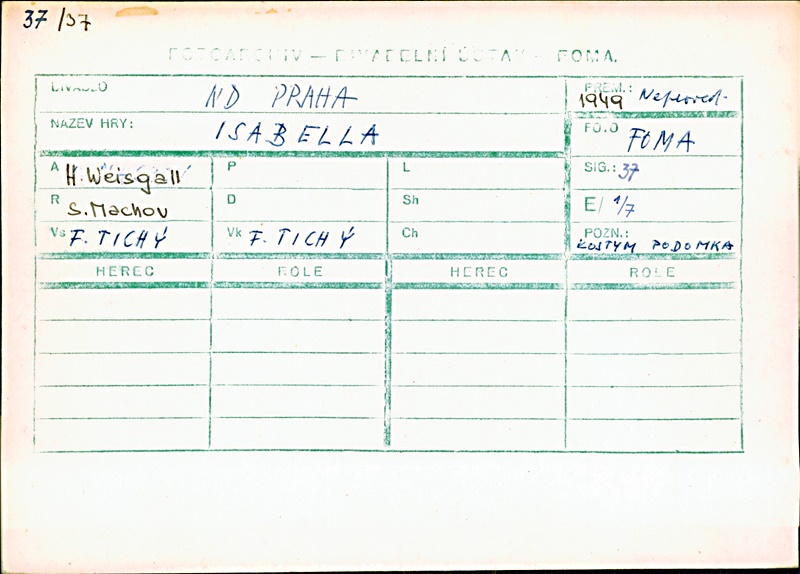 37/37
FOTOARCHIV — DIVADELNÍ ÚSTAV - FOMA.
DIVADLO ND PRAHA
PREM.: 1949 Neproved.
NÁZEV HRY: ISABELLA
FOTO FOMA
A H. Weisgall P L SIG.: 37
R S. Machov D Sh E/ 1/7
Vs F. TICHÝ Vk F. TICHÝ Ch POZN.: KOSTYM PODOMKA
HEREC ROLE HEREC ROLE